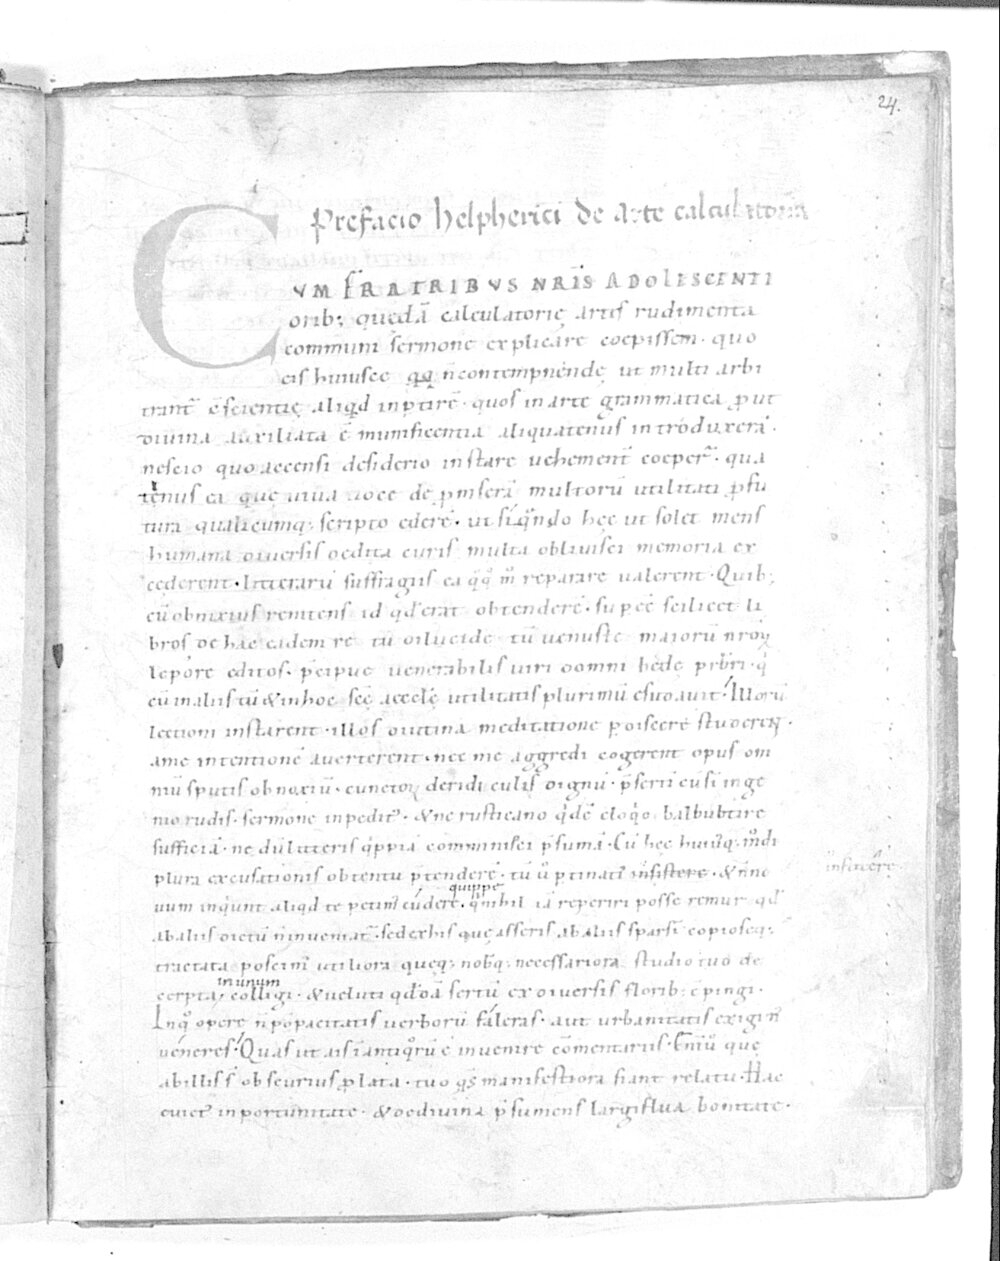 24.
Prefacio helpherici de arte calculatoria
CUM FRATRIBUS NRIS ADOLESCENTI
orib; quedā calculatorię artis rudimenta
communi sermone explicare coepissem · quo
eis huiusce qq n̄ contempnendę ut multi arbi
trant̄ ē scientię aliqd inptire · quos in arte grammatica put
divina auxiliata ē munificentia aliquatenus introduxerā ·
nescio quo accensi desiderio instare vehement̄ coeper̄ · qua
tenus ea que viva voce depmserā multorū utilitati pfu
tura qualicumq; scripto ederē · ut siqn̄do hec ut solet mens
humana diversis dedita curis multa oblivisci memoria ex
cederent · litterarū suffragiis ea qq m reparare valerent · Quib;
cū obnixius renitens id qd erat obtenderē · sup eē scilicet li
bros de hac eadem re tū dilucide tū venuste maiorū nroꝝ
lepore editos · p̄cipue venerabilis viri domni bede prbri · q
cū in aliis tū & in hoc scę accłę utilitatis plurimū desudavit · Illorū
lectioni instarent · illos diutina meditatione pdiscere studerent ·
a me intentionē averterent · nec me aggredi cogerent opus om
niū sputis obnoxiū · cunctoꝝ deridiculis dignū · p̄sertī cū sī inge
nio rudis · sermone inpedit · & ne rusticano qdē eloqo balbutire
sufficiā · nedū litteris qppiā comminisci p̄sumā · Cū hec huiq; mdi
plura excusationis obtentu p̄tenderē · tū ū ptinati insistere · & n̄ no
insistere
vum inqunt aliqd te petim cudere · qm nihil iā reperiri posse remur qd
quippe
ab aliis dictū n̄ inveniat · sed ex his que asseris ab aliis sparsī copioseq;
tractata poscim utiliora queq; nobq; necessariora studio tuo de
cerpta colligi · & veluti qdā sertū ex diversis florib; cōpingi ·
in unum
In q opere n̄ pōpaticatis verborū faleras · aut urbanitatis exigim
veneres · Quas ut ais ī antiqrū ē invenire cōmentariis · Enī que
ab illis obscurius plata · tuo qs manifestiora fiant relatu · Hac
evict inportunitate · & de divina p̄sumens largiflua bonitate ·